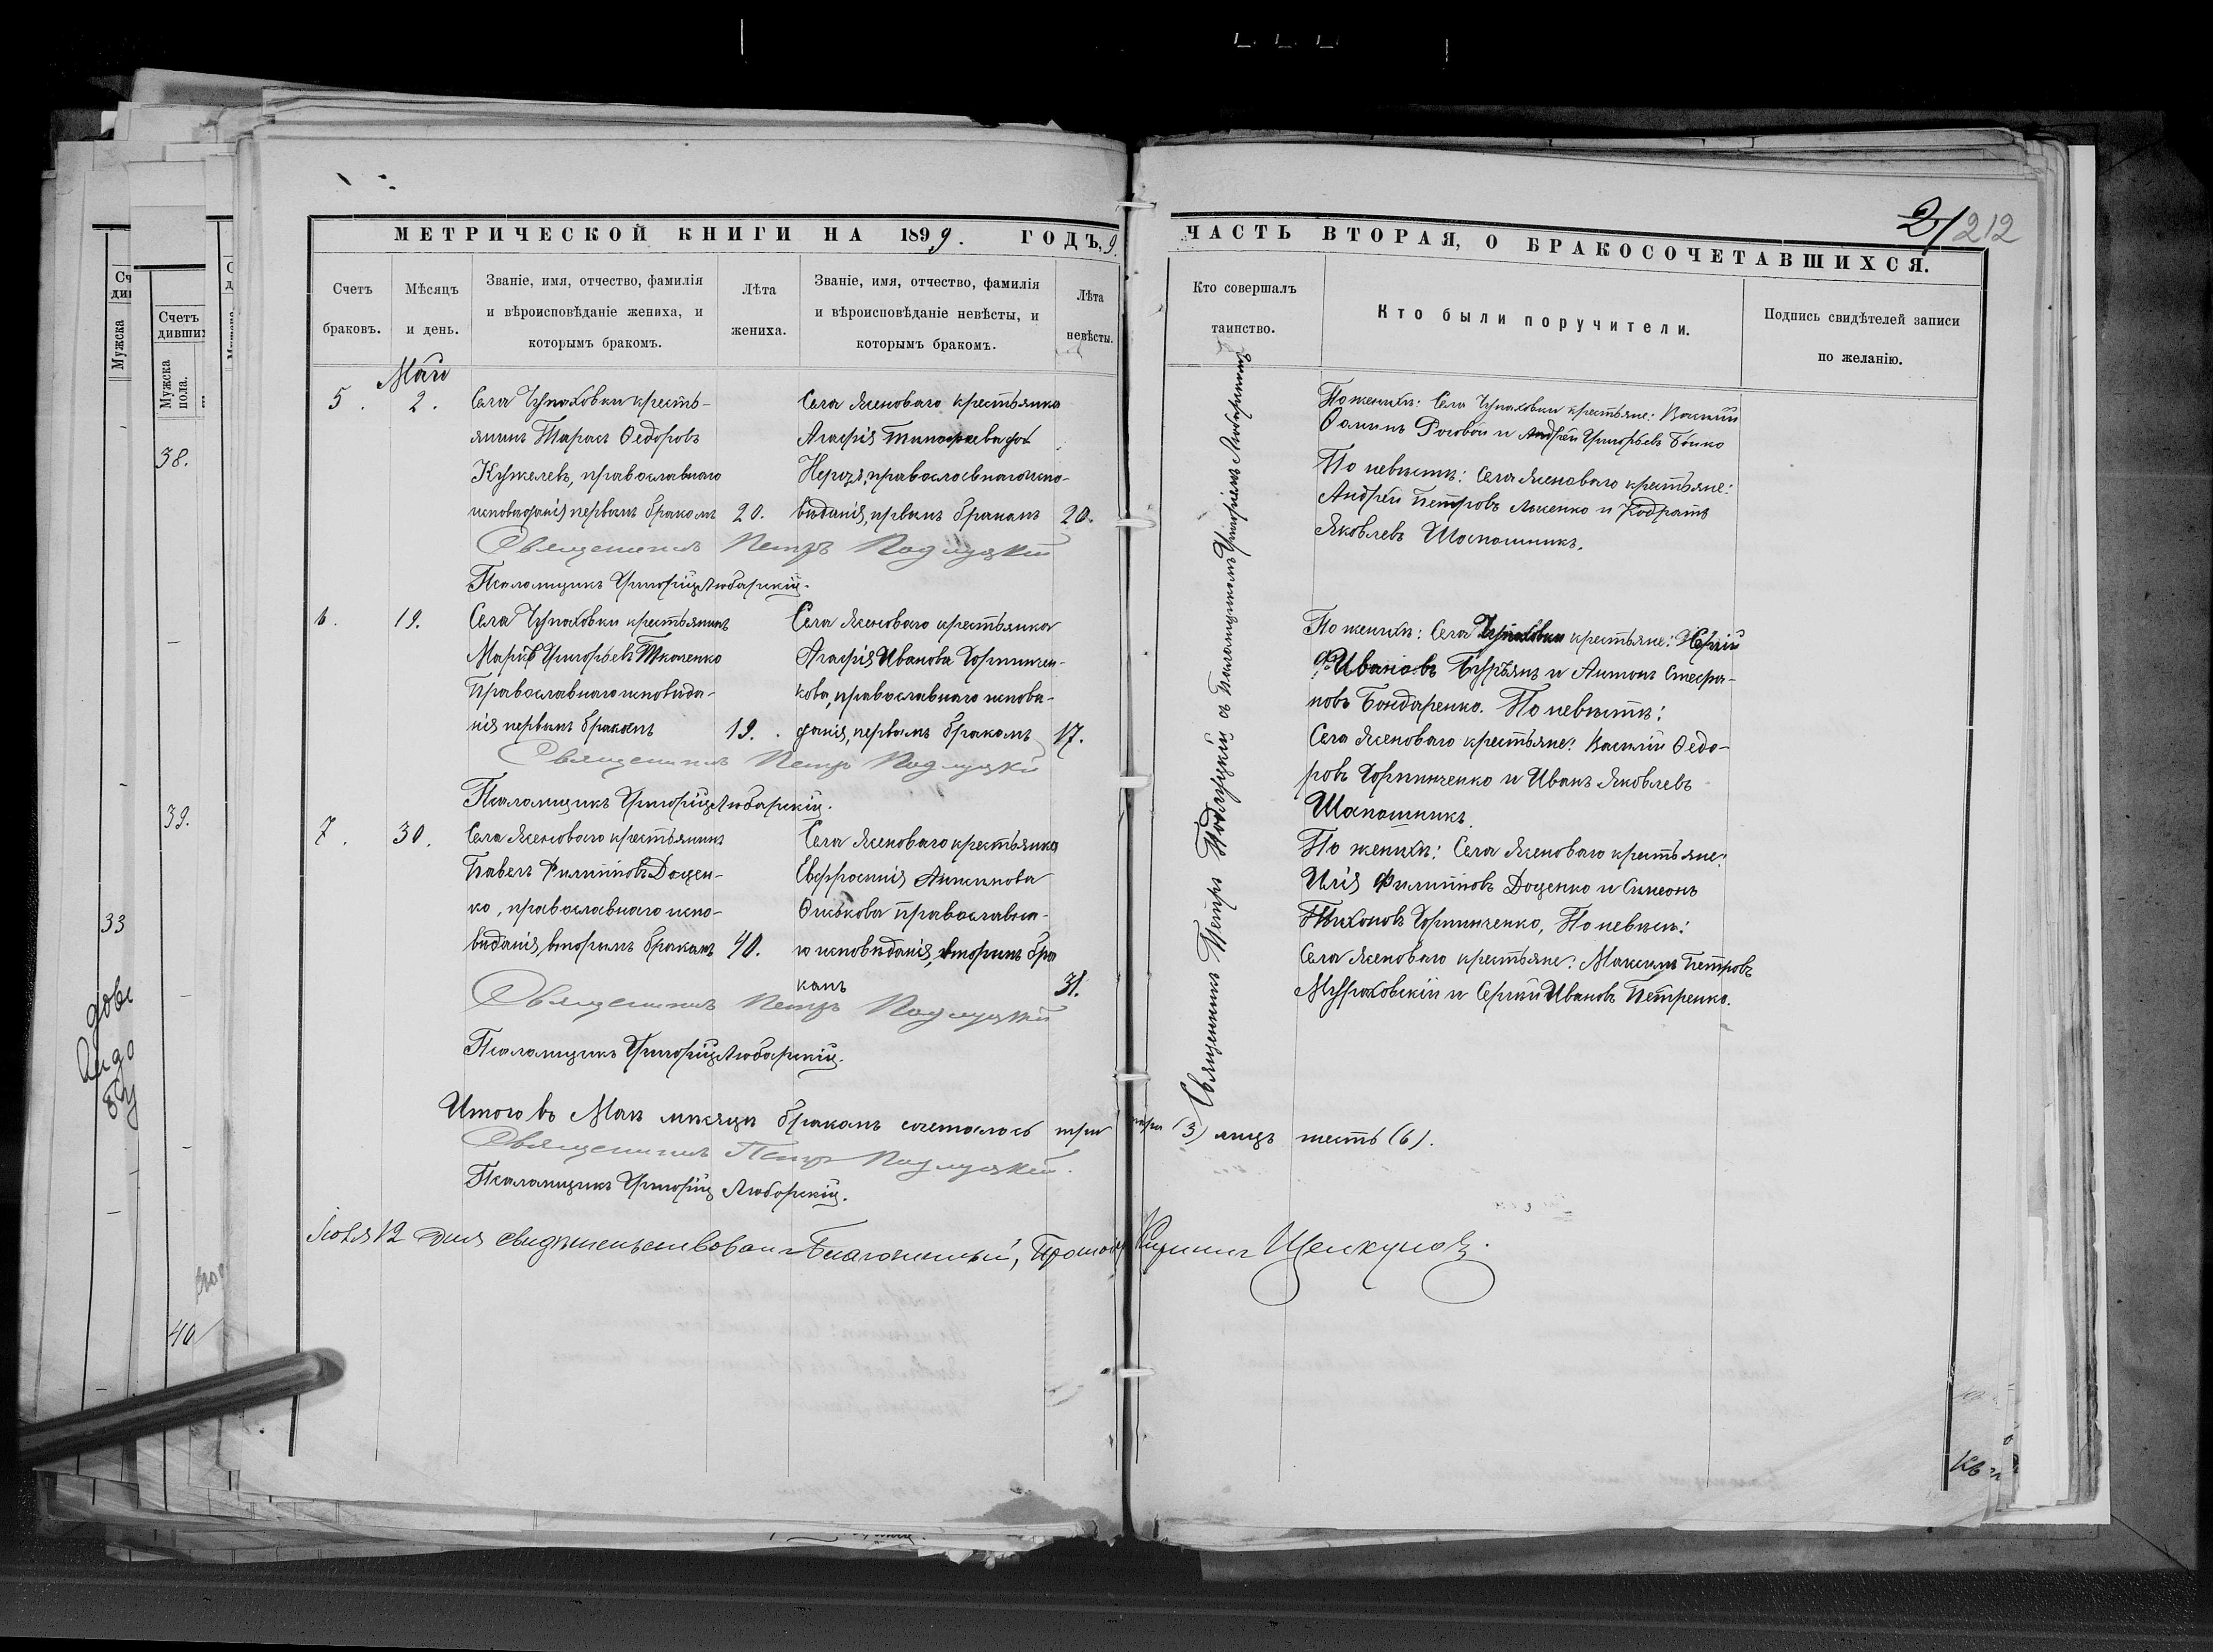 МЕТРИЧЕСКОЙ КНИГИ НА 1899. ГОДЪ,
Счетъ браковъ.
Мѣсяцъ и день.
Званіе, имя, отчество, фамилія
и вѣроисповѣданіе жениха, и
которымъ бракомъ.
Лѣта
жениха.
Званіе, имя, отчество, фамилія
и вѣроисповѣданіе невѣсты, и
которымъ бракомъ.
Лѣта
невѣсты.
Май
5. 2.
Села Чупаховки кресть-
янинъ Тарасъ Ѳедоровъ
Кужелевъ, православнаго
исповѣданія первымъ бракомъ 20.
Села Ясеноваго крестьянка
Агафія
православнаго испо-
вѣданія, первымъ бракомъ 20.
Священникъ Петръ Подлуцкій
Псаломщикъ Григорій Любарскій.
6. 19.
Села Чупаховки крестьянинъ
Григорьевъ Ткаченко
Православнаго исповѣда-
нія первымъ бракомъ 19.
Села Ясеноваго крестьянка
Агафія Иванова Горпинчен-
кова, православнаго исповѣ-
данія, первымъ бракомъ 17.
Священникъ Петръ Подлуцкій
Псаломщикъ Григорій Любарскій.
7. 30.
Села Ясеноваго крестьянинъ
Павелъ Филиповъ Доцен-
ко, православнаго испо-
вѣданія, вторымъ бракомъ 40.
Села Ясеноваго крестьянка
Евфросинія
православна-
го исповѣданія, вторымъ бра
комъ 31.
Священникъ Петръ Подлуцкій
Псаломщикъ Григорій Любарскій.
Итого въ Маѣ мѣсяцѣ бракомъ сочеталось три
Священникъ Петръ Подлуцкій.
Псаломщикъ Григорій Любарскій.
12 дня свидѣтельствовалъ Благочинный,
ЧАСТЬ ВТОРАЯ, О БРАКОСОЧЕТАВШИХСЯ.
21 212
Кто совершалъ
таинство.
Кто были поручители.
Подпись свидѣтелей записи
по желанію.
Священникъ Петръ Подлуцкій съ Псаломщикомъ Григоріемъ Любарскимъ
По женихѣ: Села Чупаховки крестьяне: Василій
Роговой и Андрей Григорьевъ Бойко
По невѣстѣ: Села Ясеноваго крестьяне:
Андрей Петровъ и Кодратъ
Яковлевъ Шапошникъ.
По женихѣ: Села Чупаховки крестьяне: Сергій
Ивановъ Бурьянъ и Антонъ Стефа-
новъ Бондаренко. По невѣстѣ:
Села Ясеноваго крестьяне: Василій Ѳедо-
ровъ Горпинченко и Иванъ Яковлевъ
Шапошникъ.
По женихѣ: Села Ясеноваго крестьяне:
Илія Филиповъ Доценко и Симеонъ
Тихоновъ Горпинченко, По невѣстѣ:
Села Ясеноваго крестьяне: Максимъ Петровъ
и Сергій Ивановъ Петренко.
(3) лицъ шесть (6).
38.
39.
33
40